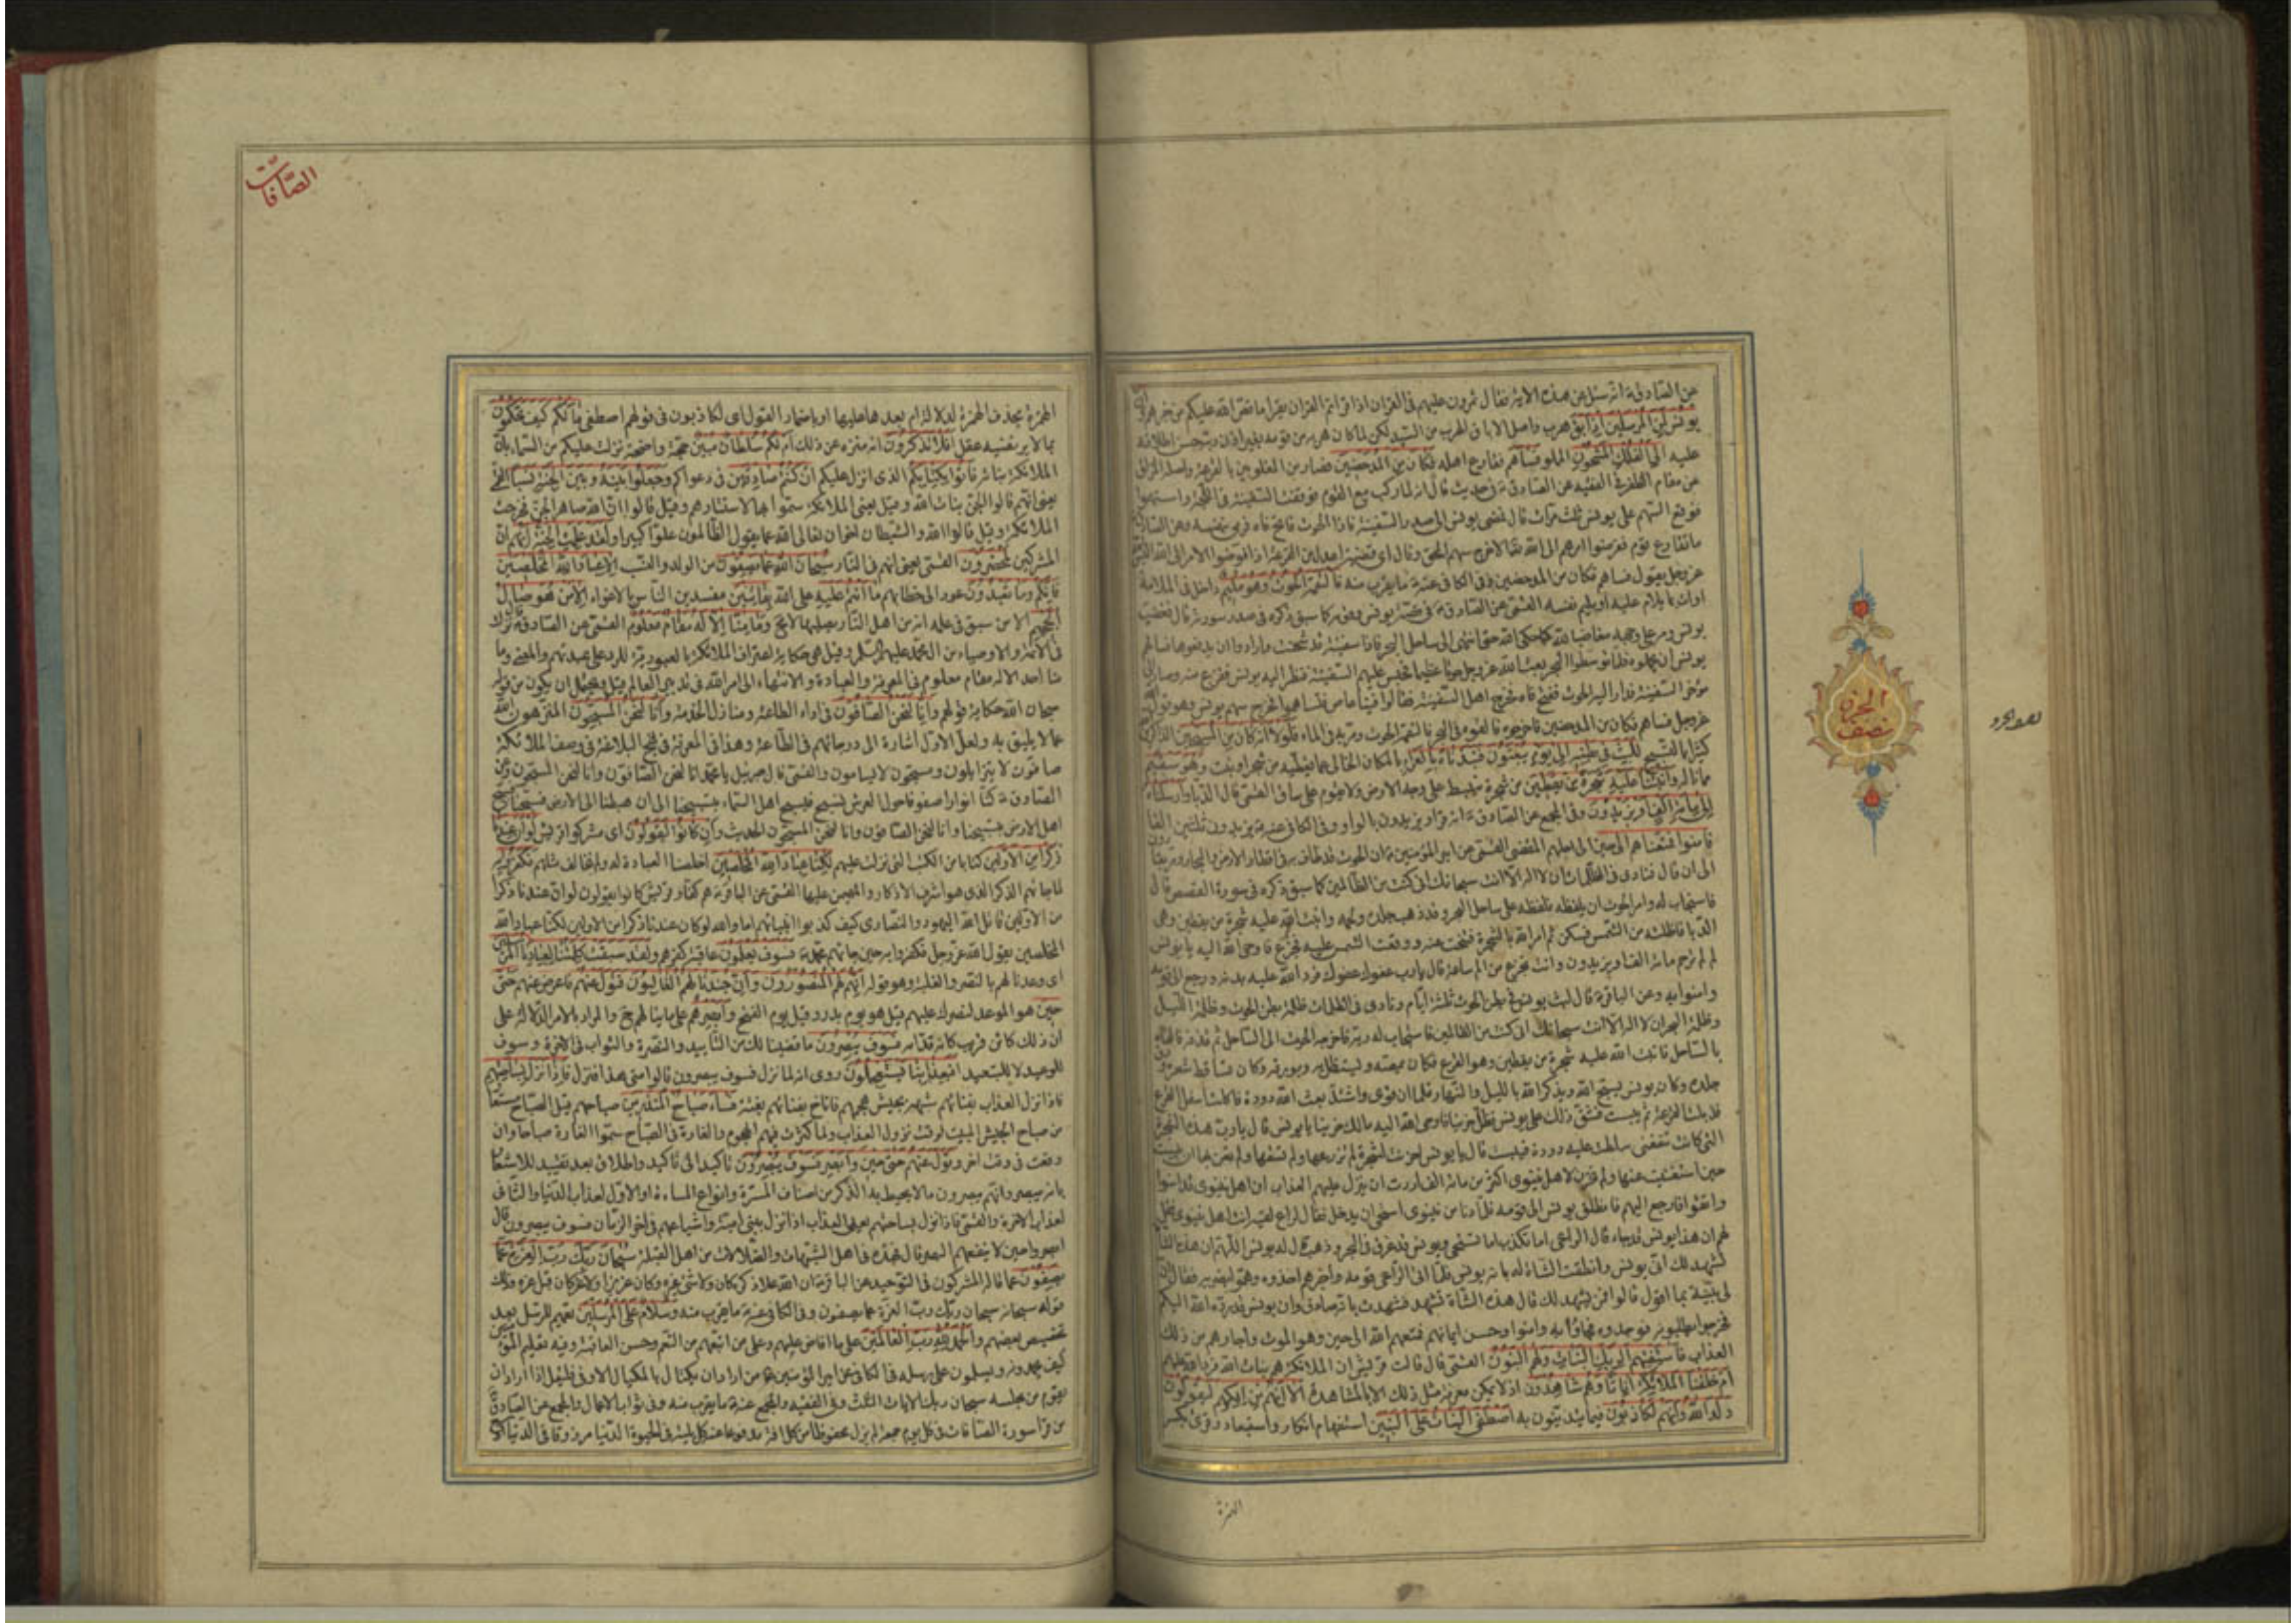 عن الصادق ع انه سئل عن هذه الاية فقال تمرون عليهم في القران اذا قراتم القران يقرا ما قص الله عليكم من خبرهم وان
يونس لمن المرسلين اذ ابق هرب واصل الاباق الهرب من السيد لكن لما كان هربه من قومه بغير اذن ربه حسن اطلاقه
عليه الى الفلك المشحون المملو فساهم فقارع اهله فكان من المدحضين فصار من المغلوبين بالقرعة واصله المزلق
عن مقام الظفر في الفقيه عن الصادق ع في حديث قال انه لما ركب مع القوم فوقفت السفينة في اللجة واستهموا
فوقع السهم على يونس ثلث مرات قال فمضى يونس الى صدر السفينة فاذا الحوت فاتح فاه فرمى بنفسه وعن الصادق
ما تقارع قوم ففوضوا امرهم الى الله تعالى الا خرج سهم المحق وقال اي قضية اعدل من القرعة اذا فوضوا الامر الى الله اليس الله
عز وجل يقول فساهم فكان من المدحضين وفي الكافي عنه ع ما يقرب منه فالتقمه الحوت وهو مليم داخل في الملامة
او ات بما يلام عليه او مليم نفسه القمي عن الصادق ع في قصة يونس وقومه كما سبق ذكره في صدر سورته قال فغضب
يونس ومر على وجهه مغاضبا لله كما حكى الله حتى انتهى الى ساحل البحر فاذا سفينة قد شحنت وارادوا ان يدفعوها فسالهم
يونس ان يحملوه فلما توسطوا البحر بعث الله عز وجل حوتا عظيما فحبس عليهم السفينة فنظر اليه يونس ففزع منه وصار الى
مؤخر السفينة فدار اليه الحوت ففتح فاه فخرج اهل السفينة فقالوا فينا عاص فتساهموا فخرج سهم يونس وهو قول الله
عز وجل فساهم فكان من المدحضين فاخرجوه فالقوه في البحر فالتقمه الحوت ومر به في الماء فلولا انه كان من المسبحين الذاكرين
كثيرا بالتسبيح للبث في بطنه الى يوم يبعثون فنبذناه بالعراء بالمكان الخالي عما يغطيه من شجر او نبت وهو سقيم
مما ناله وانبتنا عليه شجرة من يقطين من شجرة تنبسط على وجه الارض ولا يقوم على ساق القمي قال الدبا وارسلناه
الى مائة الف او يزيدون وفي المجمع عن الصادق ع انه قرا ويزيدون بالواو وفي الكافي عنه ع يزيدون ثلثين الفا
فامنوا فمتعناهم الى حين الى اجلهم المقضى القمي عن امير المؤمنين ع ان الحوت قد طاف به في اقطار الارض والبحار ومر بقارون
الى ان قال فنادى في الظلمات ان لا اله الا انت سبحانك اني كنت من الظالمين كما سبق ذكره في سورة القصص قال
فاستجاب له وامر الحوت ان يلفظه فلفظه على ساحل البحر وقد ذهب جلده ولحمه وانبت الله عليه شجرة من يقطين وهي
الدبا فاظلته من الشمس فسكن ثم امر الله بالشجرة فتنحت عنه ووقعت الشمس عليه فجزع فاوحى الله اليه يا يونس
لم لم ترحم مائة الف او يزيدون وانت تجزع من الم ساعة قال يا رب عفوك عفوك فرد الله عليه بدنه ورجع الى قومه
وامنوا به وعن الباقر ع قال لبث يونس في بطن الحوت ثلثة ايام ونادى في الظلمات ظلمة بطن الحوت وظلمة الليل
وظلمة البحر ان لا اله الا انت سبحانك اني كنت من الظالمين فاستجاب له ربه فاخرجه الحوت الى الساحل ثم قذفه فالقاه
بالساحل فانبت الله عليه شجرة من يقطين وهو القرع فكان يمصه ويستظل به وبورقه وكان تساقط شعره ورق
جلده وكان يونس يسبح الله ويذكر الله بالليل والنهار فلما ان قوى واشتد بعث الله دودة فاكلت اسفل القرع
فذبلت القرعة ثم يبست فشق ذلك على يونس فظل حزينا فاوحى الله اليه مالك حزينا يا يونس قال يا رب هذه الشجرة
التي كانت تنفعني سلطت عليه دودة فيبست قال يا يونس احزنت لشجرة لم تزرعها ولم تسقها ولم تعن بها ان يبست
حين استغنيت عنها ولم تحزن لاهل نينوى اكثر من مائة الف اردت ان ينزل عليهم العذاب ان اهل نينوى قد امنوا
واتقوا فارجع اليهم فانطلق يونس الى قومه فلما دنا من نينوى استحيى ان يدخل فقال لراع لقيه ائت اهل نينوى فقل
لهم ان هذا يونس قد جاء قال الراعي اما تكذب اما تستحيى ويونس قد غرق في البحر وذهب قال له يونس اللهم ان هذه الشاة
تشهد لك اني يونس وانطقت الشاة له بانه يونس فلما اتى الراعي قومه واخبرهم اخذوه وهموا بضربه فقال ان
لي بينة بما اقول قالوا فمن يشهد لك قال هذه الشاة تشهد فشهدت بانه صادق وان يونس قد رده الله اليكم
فخرجوا يطلبونه فوجدوه فجاؤا به وامنوا وحسن ايمانهم فمتعهم الله الى حين وهو الموت واجارهم من ذلك
العذاب فاستفتهم الربك البنات ولهم البنون القمي قال قالت قريش ان الملائكة هم بنات الله فرد الله عليهم
ام خلقنا الملائكة اناثا وهم شاهدون اذ لا يمكن معرفة مثل ذلك الا بالمشاهدة الا انهم من افكهم ليقولون
ولد الله وانهم لكاذبون فيما يتدينون به اصطفى البنات على البنين استفهام انكار واستبعاد وقرئ بكسر
الهمزة
الحزن
نصف
الصافات
الهمزة بحذف الهمزة لدلالة ام بعدها عليها او باضمار القول اى لكاذبون في قولهم اصطفى مالكم كيف تحكمون
بما لا يرتضيه عقل افلا تذكرون انه منزه عن ذلك ام لكم سلطان مبين حجة واضحة نزلت عليكم من السماء بان
الملائكة بناته فاتوا بكتابكم الذي انزل عليكم ان كنتم صادقين في دعواكم وجعلوا بينه وبين الجنة نسبا القمي
يعني انهم قالوا الجن بنات الله وقيل يعني الملائكة سموا بها لاستتارهم وقيل قالوا ان الله صاهر الجن فخرجت
الملائكة وقيل قالوا الله والشيطان اخوان تعالى الله عما يقول الظالمون علوا كبيرا ولقد علمت الجنة انهم ان
المشركين لمحضرون القمي يعني انهم في النار سبحان الله عما يصفون من الولد والنسب الا عباد الله المخلصين
فانكم وما تعبدون عود الى خطابهم ما انتم عليه على الله بفاتنين مفسدين الناس بالاغواء الا من هو صال
الجحيم الا من سبق في علمه انه من اهل النار يصليها لا مح وما منا الا له مقام معلوم القمي عن الصادق ع قال نزلت
في الائمة والاوصياء من ال محمد عليهم السلم وقيل هي حكاية اعتراف الملائكة بالعبودية للرد على عبدتهم والمعنى وما
منا احد الا له مقام معلوم في المعرفة والعبادة والانتهاء الى امر الله في تدبير العالم قيل ويحتمل ان يكون من قوله
سبحان الله حكاية قولهم وانا لنحن الصافون في اداء الطاعة ومنازل الخدمة وانا لنحن المسبحون المنزهون الله
عما لا يليق به ولعل الاول اشارة الى درجاتهم في الطاعة وهذا في المعرفة في نهج البلاغة في وصف الملائكة
صافون لا يتزايلون ومسبحون لا يسامون والقمي قال جبرئيل يا محمد انا لنحن الصافون وانا لنحن المسبحون وعن
الصادق ع كنا انوارا صفوفا حول العرش نسبح فيسبح اهل السماء بتسبيحنا الى ان هبطنا الى الارض فسبحنا فسبح
اهل الارض بتسبيحنا وانا لنحن الصافون وانا لنحن المسبحون الحديث وان كانوا ليقولون اى مشركوا قريش لو ان عندنا
ذكرا من الاولين كتابا من الكتب التي نزلت عليهم لكنا عباد الله المخلصين اخلصنا العبادة له ولم نخالف مثلهم فكفروا به
لما جائهم الذكر الذي هو اشرف الاذكار والمهيمن عليها القمي عن الباقر ع هم كفار قريش كانوا يقولون لو ان عندنا ذكرا
من الاولين قاتل الله اليهود والنصارى كيف كذبوا انبيائهم اما والله لو كان عندنا ذكرا من الاولين لكنا عباد الله
المخلصين يقول الله عز وجل فكفروا به حين جائهم محمد ع فسوف يعلمون عاقبة كفرهم ولقد سبقت كلمتنا لعبادنا المرسلين
اى وعدنا لهم بالنصر والغلبة وهو قوله انهم لهم المنصورون وان جندنا لهم الغالبون فتول عنهم فاعرض عنهم حتى
حين هو الموعد لنصرك عليهم قيل هو يوم بدر وقيل يوم الفتح وابصرهم على ما ينالهم ح والمراد بالامر الدلالة على
ان ذلك كائن قريب كانه قدامه فسوف يبصرون ما قضينا لك من التاييد والنصرة والثواب في الاخرة وسوف
للوعيد لا للتبعيد افبعذابنا يستعجلون روى انه لما نزل فسوف يبصرون قالوا متى هذا فنزل فاذا نزل بساحتهم
فاذا نزل العذاب بفنائهم شبهه بجيش هجمهم فاناخ بفنائهم بغتة فساء صباح المنذرين صباحهم قيل الصباح مستعار
من صباح الجيش المبيت لوقت نزول العذاب ولما كثرت فيهم الهجوم والغارة في الصباح سموا الغارة صباحا وان
وقعت في وقت اخر وتول عنهم حتى حين وابصر فسوف يبصرون تاكيد الى تاكيد واطلاق بعد تقييد للاشعار
بانه يبصر وانهم يبصرون ما لا يحيط به الذكر من اصناف المسرة وانواع المساءة او الاول لعذاب الدنيا والثاني
لعذاب الاخرة والقمي فاذا نزل بساحتهم يعني العذاب اذا نزل ببني امية واشياعهم في اخر الزمان فسوف يبصرون قال
ابصروا حين لا ينفعهم البصر قال فهذه في اهل الشبهات والضلالات من اهل القبلة سبحان ربك رب العزة عما
يصفون عما قاله المشركون في التوحيد عن الباقر ع ان الله علا ذكره كان ولا شئ غيره وكان عزيزا ولا عز كان قبل عزه وذلك
قوله سبحانه سبحان ربك رب العزة عما يصفون وفي الكافي عنه ع ما يقرب منه وسلام على المرسلين تعميم للرسل بعد
تخصيص بعضهم والحمد لله رب العالمين على ما افاض عليهم وعلى من اتبعهم من النعم وحسن العاقبة وفيه تعليم المؤمنين
كيف يحمدونه ويسلمون على رسله في الكافي عن امير المؤمنين ع من اراد ان يكتال بالمكيال الاوفى فليقل اذا اراد ان
يقوم من مجلسه سبحان ربك الايات الثلث وفي الفقيه والمجمع عنه ع ما يقرب منه وفي ثواب الاعمال والمجمع عن الصادق ع
من قرا سورة الصافات في كل يوم جمعة لم يزل محفوظا من كل افة مدفوعا عنه كل بلية في الحيوة الدنيا مرزوقا في الدنيا